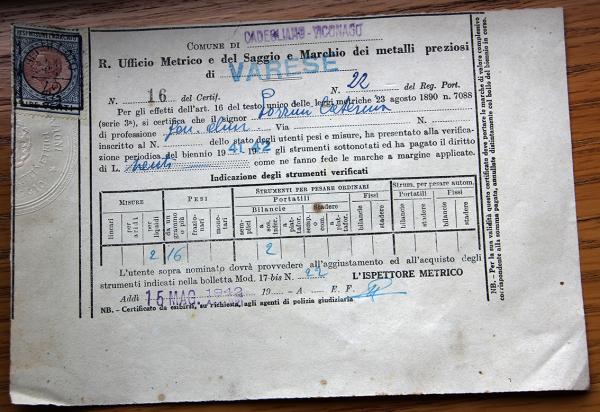 COMUNE DI CADEGLIANO-VICONAGO
R. Ufficio Metrico e del Saggio e Marchio dei metalli preziosi
di VARESE
N. 16 del Certif. N. 22 del Reg. Port.
Per gli effetti dell'art. 16 del testo unico delle leggi metriche 23 agosto 1890 n. 7088
(serie 3ª), si certifica che il signor Caterina
di professione Via N.
inscritto al N. dello stato degli utenti pesi e misure, ha presentato alla verifica-
zione periodica del biennio 1941-1942 gli strumenti sottonotati ed ha pagato il diritto
di L. come ne fanno fede le marche a margine applicate.
Indicazione degli strumenti verificati
MISURE
PESI
STRUMENTI PER PESARE ORDINARI
Strum. per pesare autom.
Portatili
Fissi
Portatili
Fissi
Bilancie
Stadere
lineari
per aridi
per liquidi
da un grammo o più
frazionari
monetari
semplici
a sos. tafor.
a plat. tafor.
semp. o com.
a plat. tafor.
bilancie
stadere
bilancie
stadere
bilancie
stadere
2 16 2
L'utente sopra nominato dovrà provvedere all'aggiustamento ed all'acquisto degli
strumenti indicati nella bolletta Mod. 17-bis N. 22
L'ISPETTORE METRICO
Addì 15 MAG. 1942 19 - A. E. F.
NB. - Certificato da esibirsi, su richiesta, agli agenti di polizia giudiziaria
NB. - Per la sua validità questo certificato deve portare le marche di valore complessivo
corrispondente alla somma pagata, annullate distintamente col bollo del biennio in corso.